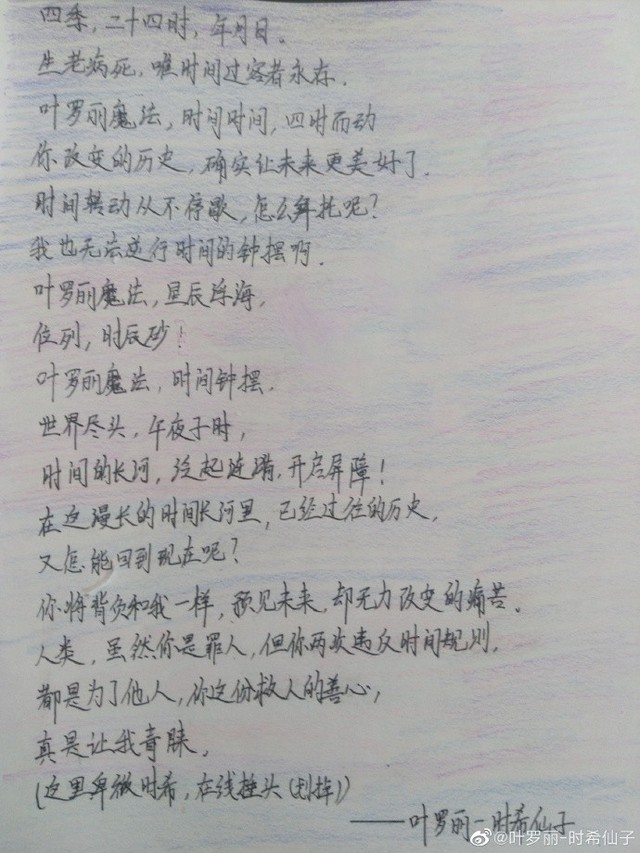 四季，二十四时，年月日。
生老病死，唯时间过客者永存．
叶罗丽魔法，时间时间，四时而动
你改变的历史，确实让未来更美好了．
时间转动从不停歇，怎么拜托呢？
我也无法逆行时间的钟摆啊．
叶罗丽魔法，星辰浮海，
位列，时辰砂！
叶罗丽魔法，时间钟摆．
世界尽头，午夜子时，
时间的长河，泛起涟漪．开启屏障！
在这漫长的时间长河里，已经过往的历史，
又怎能回到现在呢？
你将背负和我一样，预见未来，却无力改变的痛苦．
人类，虽然你是罪人，但你两次违反时间规则，
都是为了他人，你这份救人的善心，
真是让我青睐．
(这里卑微时希，在线挂头(划掉))
——叶罗丽-时希仙子
@叶罗丽-时希仙子